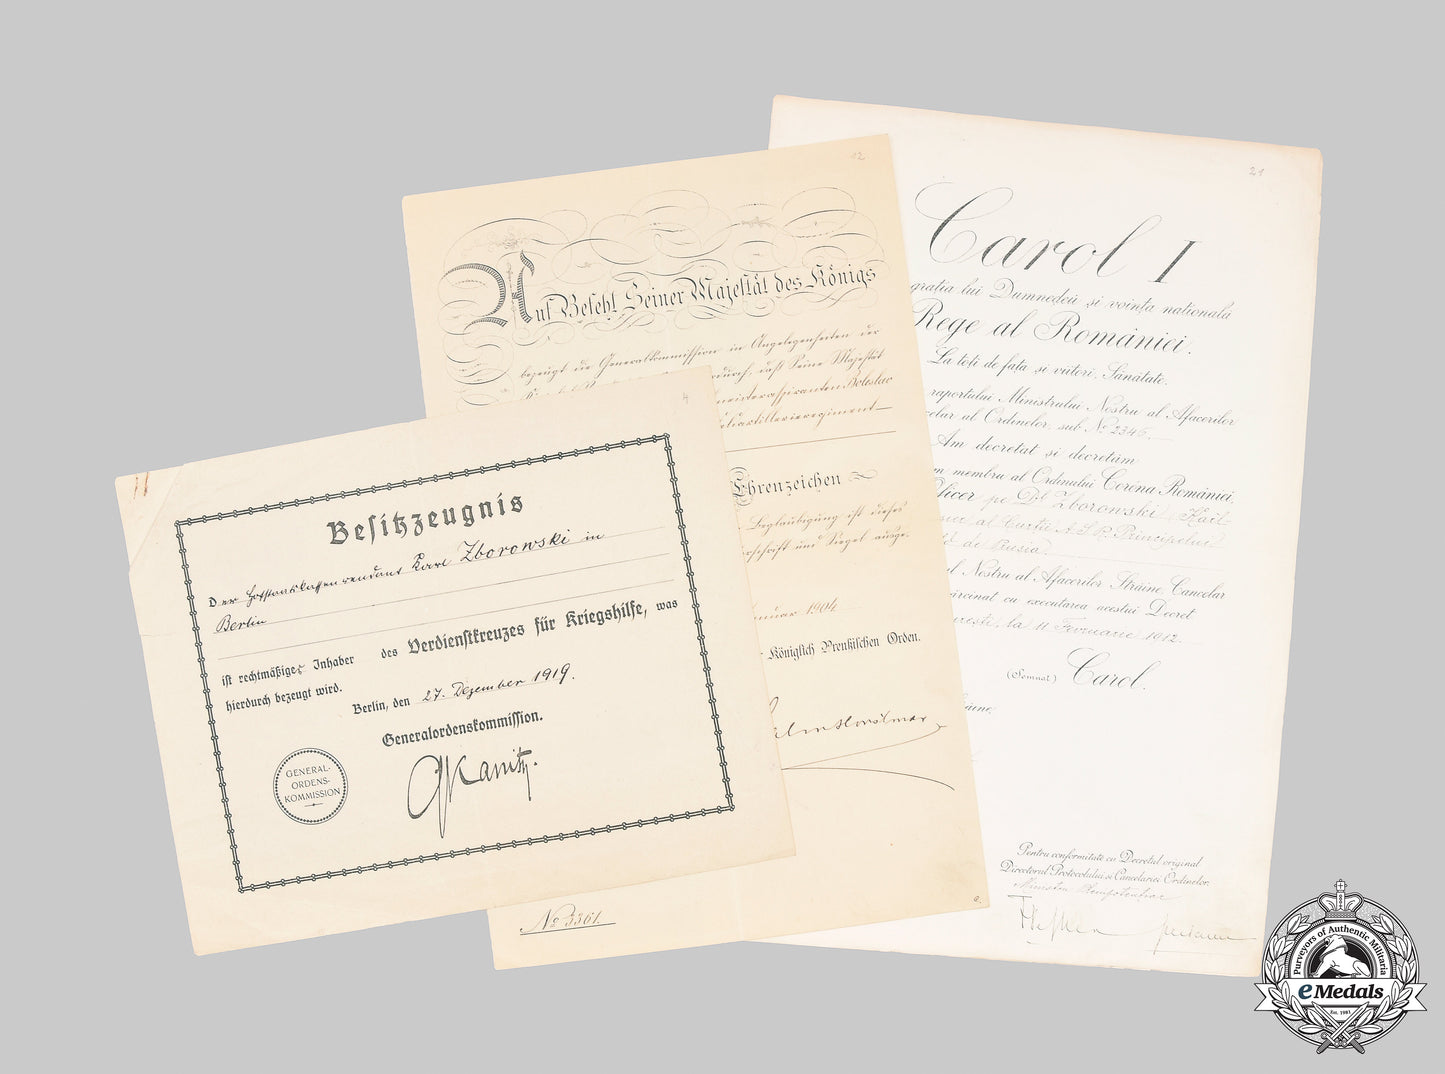 4
Besitzzeugnis
Der Hofstaatskassenrendant Karl Zborowski in
Berlin
ist rechtmäßiger Inhaber des Verdienstkreuzes für Kriegshilfe, was
hierdurch bezeugt wird.
Berlin, den 27. Dezember 1919.
Generalordenskommission.
GENERAL-
ORDENS-
KOMMISSION
12
Auf Befehl Seiner Majestät des Königs
bezeugt die Generalkommission in Angelegenheiten der
durch, daß Seine Majestät
Boleslav
artillerieregiment
Ehrenzeichen
Beglaubigung ist dieses
schrift und Siegel ausge-
nuar 1904
Königlich Preußischen Orden.
No 3361.
e.
21
Carol I
gratia lui Dumnedeu și voința națională
Rege al României.
La toți de față și viitori, Sănătate.
raportului Ministrului Nostru al Afacerilor
celar al Ordinelor, sub No 2346.
Am decretat și decretăm
membru al Ordinului Corona României
ficer pe Dl Zborowski Karl
al Curții A.S.R. Principelui
de Prusia
Nostru al Afacerilor Străine, Cancelar
sărcinat cu executarea acestui Decret
rești, la 11 Fevruarie 1912.
(Semnat) Carol.
Pentru conformitate cu Decretul original
Directorul Protocolului și Cancelariei Ordinelor,
Ministru Plenipotențiar
Purveyors of Authentic Militaria
eMedals
Est. 1981